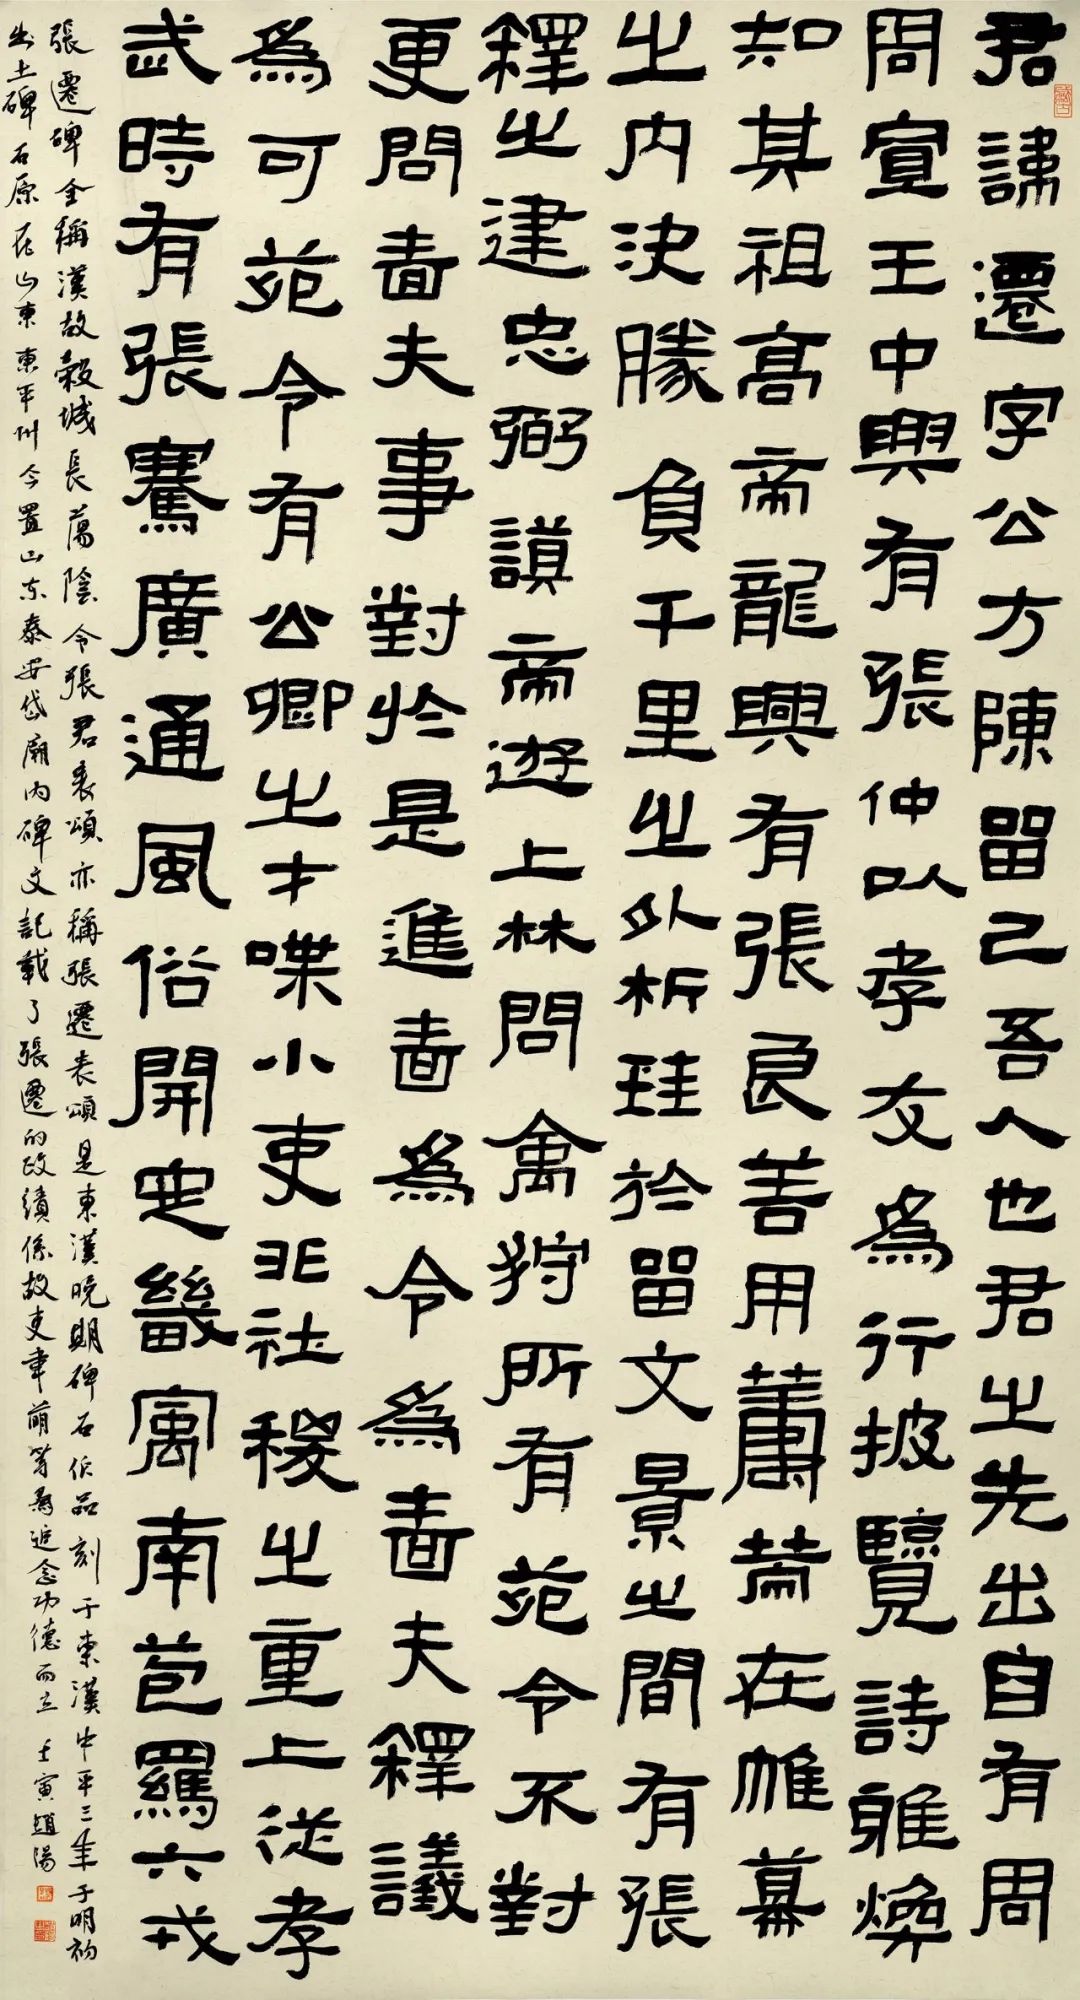 君諱遷字公方陳留己吾人也君之先出自有周
周宣王中興有張仲以孝友為行披覽詩雅煥
知其祖高帝龍興有張良善用蕭何在帷幕
之內決勝負千里之外析珪於留文景之間有張
釋之建忠弼謨帝遊上林問禽狩所有苑令不對
更問嗇夫事對於是進嗇為令令為嗇夫釋議
為可苑令有公卿之才喋小吏非社稷之重上從孝
武時有張騫廣通風俗開定畿寓南苞羅六戎
張遷碑全稱漢故穀城長蕩陰令張君表頌亦稱張遷表頌是東漢晚期碑石作品刻于東漢中平三年于明初
出土碑石原在山東東平州今置山东泰安岱廟內碑文記載了張遷的政績係故吏韋萌等為追念功德而立壬寅趙陽